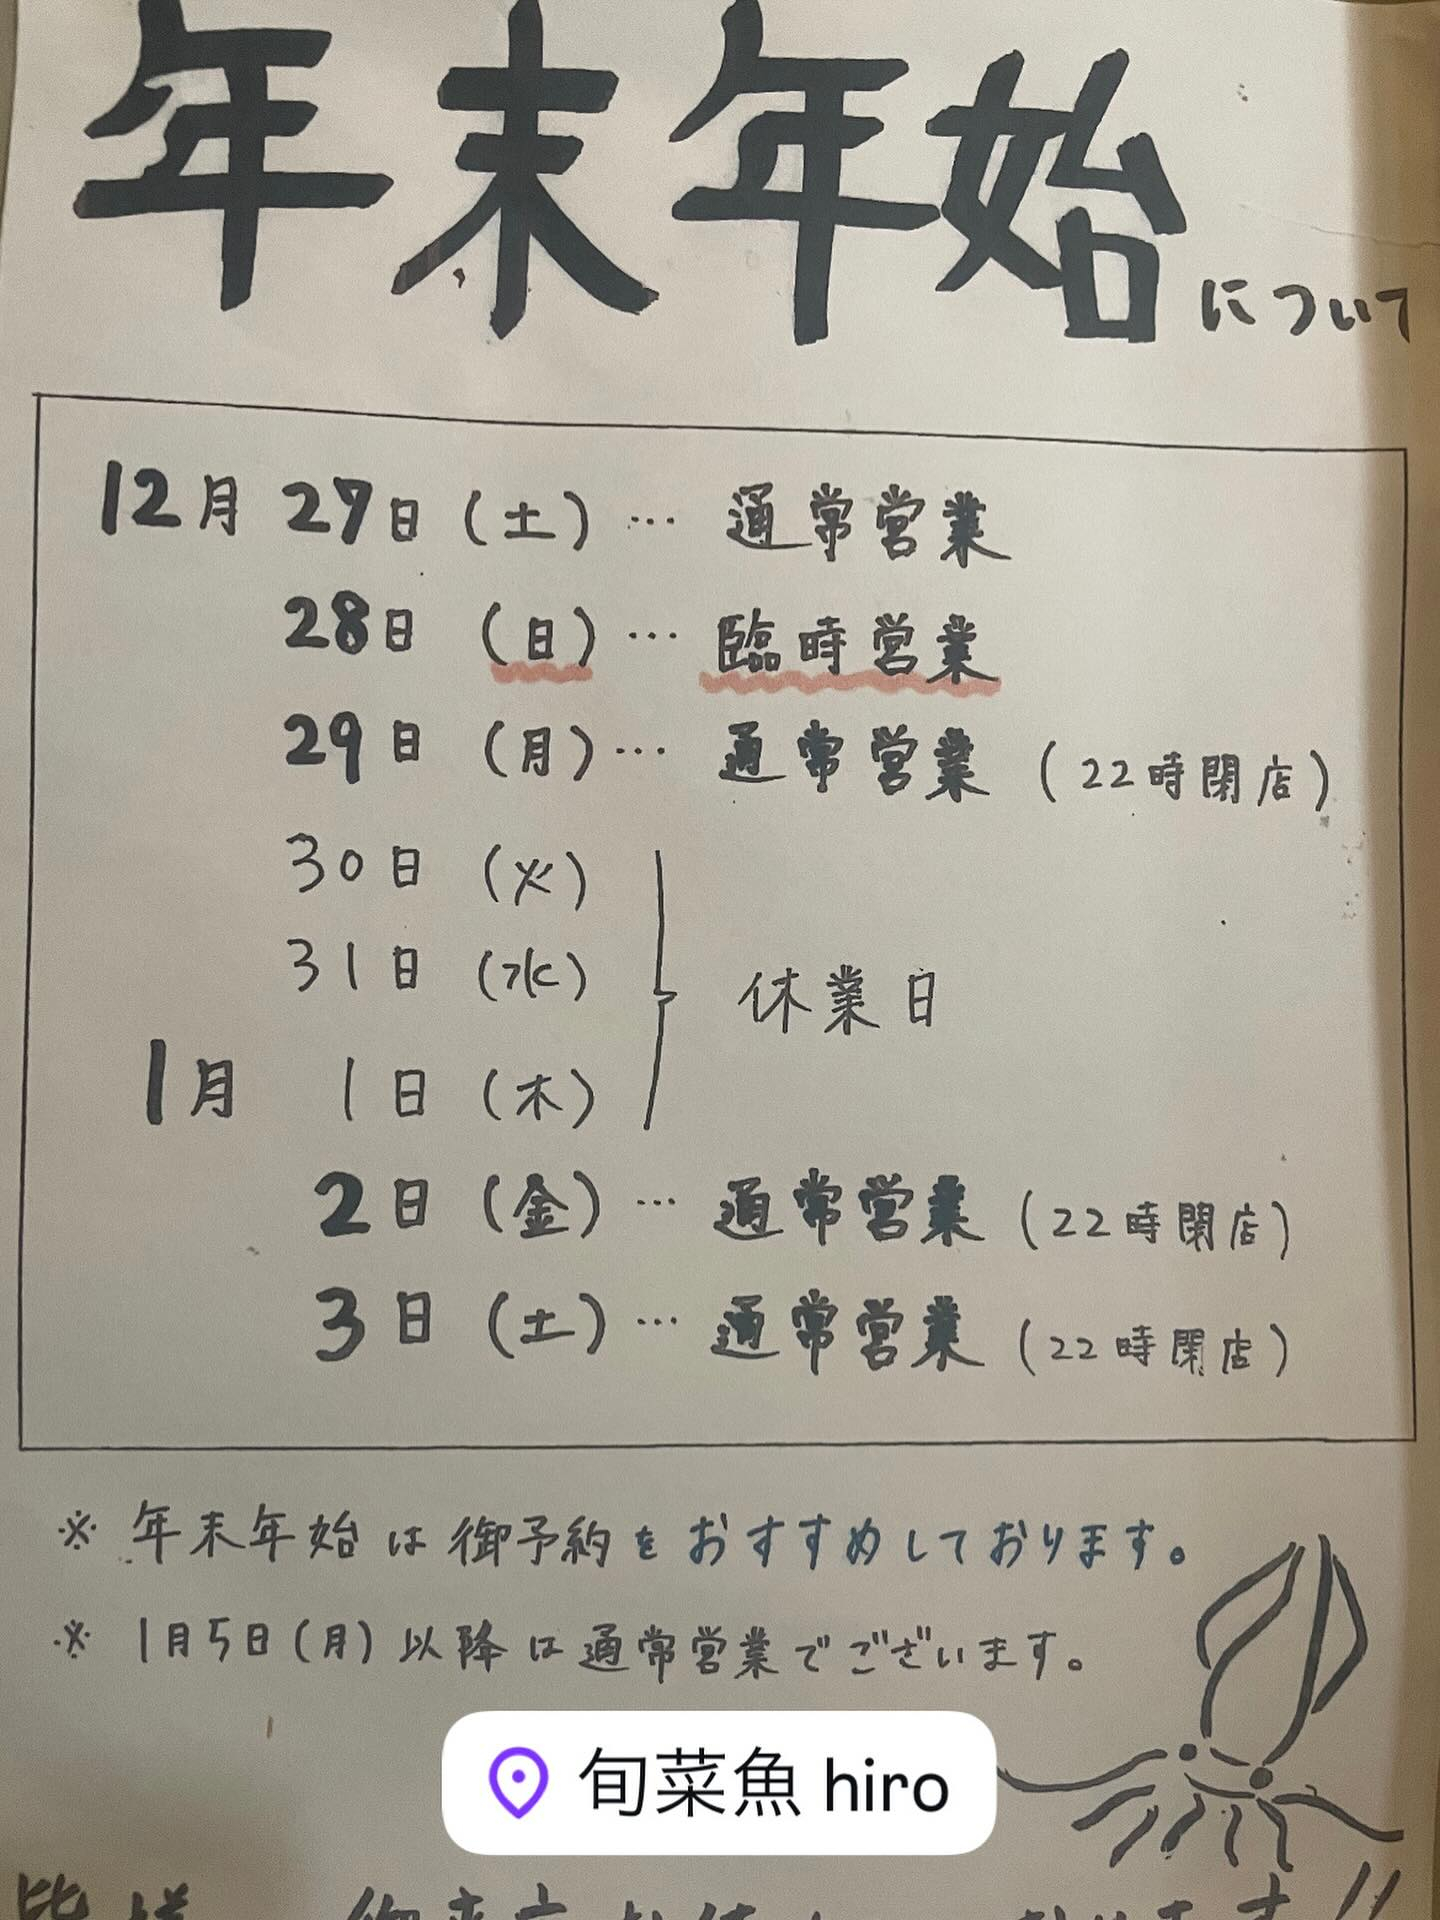 年末年始について
12月27日(土)…通常営業
28日(日)…臨時営業
29日(月)…通常営業(22時閉店)
30日(火)
31日(水)
休業日
1月1日(木)
2日(金)…通常営業(22時閉店)
3日(土)…通常営業(22時閉店)
※年末年始は御予約をおすすめしております。
※1月5日(月)以降は通常営業でございます。
旬菜魚 hiro
皆様